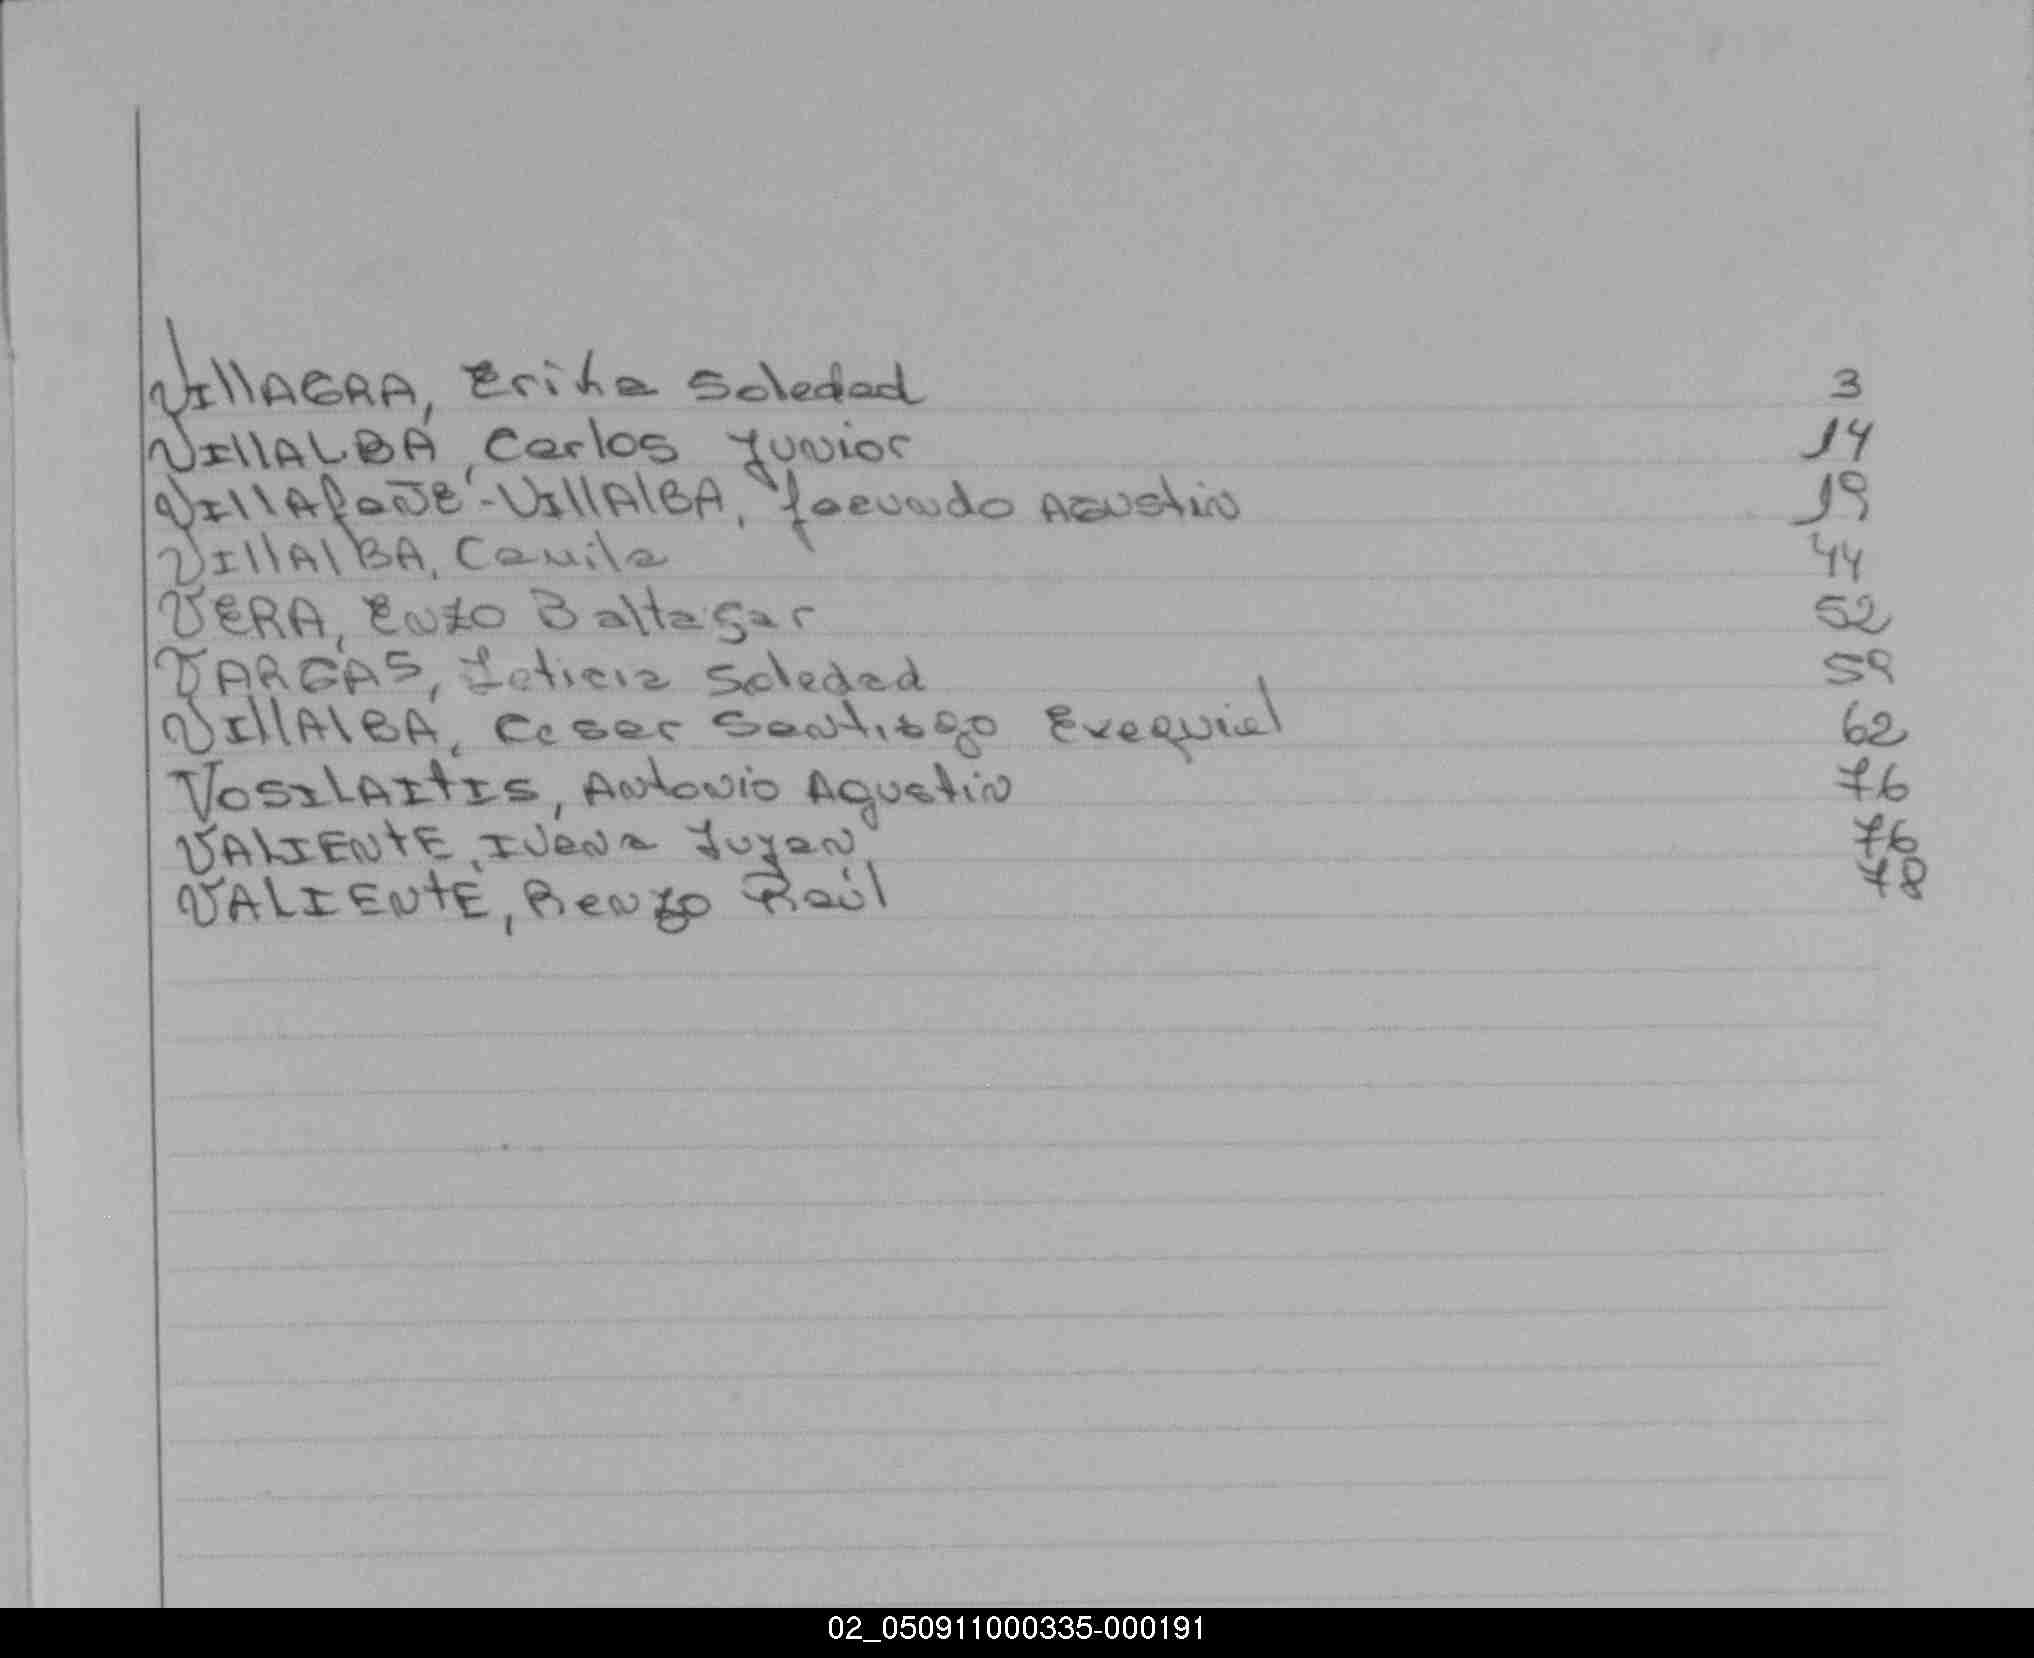 VIllAGRA, Erika Soledad 3
VIllALBA, Carlos Junior 14
VIllAfañE-VIllAlBA, facundo AGustin 19
VIllAlBA, Camila 44
VERA, Enzo Baltasar 52
VARGAS, Leticia Soledad 59
VIllAlBA, Cesar Santiago Exequiel 62
VOSILAItIS, Antonio Agustin 76
VALIENtE, Ivana 76
VALIENtE, Renzo Raúl 78
02_050911000335-000191